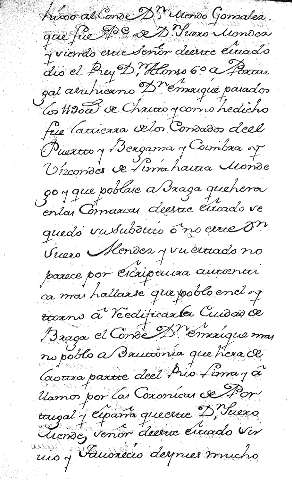 hixoo al Conde Dⁿ Mendo Gonzalez
que fue P.e de Dⁿ Suero Mendez
y viendo este señor deeste estado
dio el Rey Dⁿ Alonso 6º a Portu
gal a su hierno Dⁿ Enrrique pasados
los de Christo y como he dicho
fue la tierra de los Condados de el
Puertto y Bergama y Coimbra y
Vizcondes de Limia hasta Monde
go y que poblase a Braga que hera
en las Comarcas deeste estado se
quedó su Subdito ó no este Dⁿ
Suero Mendez y su estado no
parece por escriptura autenti
ca mas hallarse que poblo en el y
torno á Reedificar la Ciudad de
Braga el Conde Dⁿ Enrrique mas
no poblo a Brittonia que hera de
la otra partte del Rio Limia y á
llamos por las Coronicas de Por
tugal y españa que este Dⁿ Suero
Mendez señor deeste estado sir
vio y favorecio despues mucho